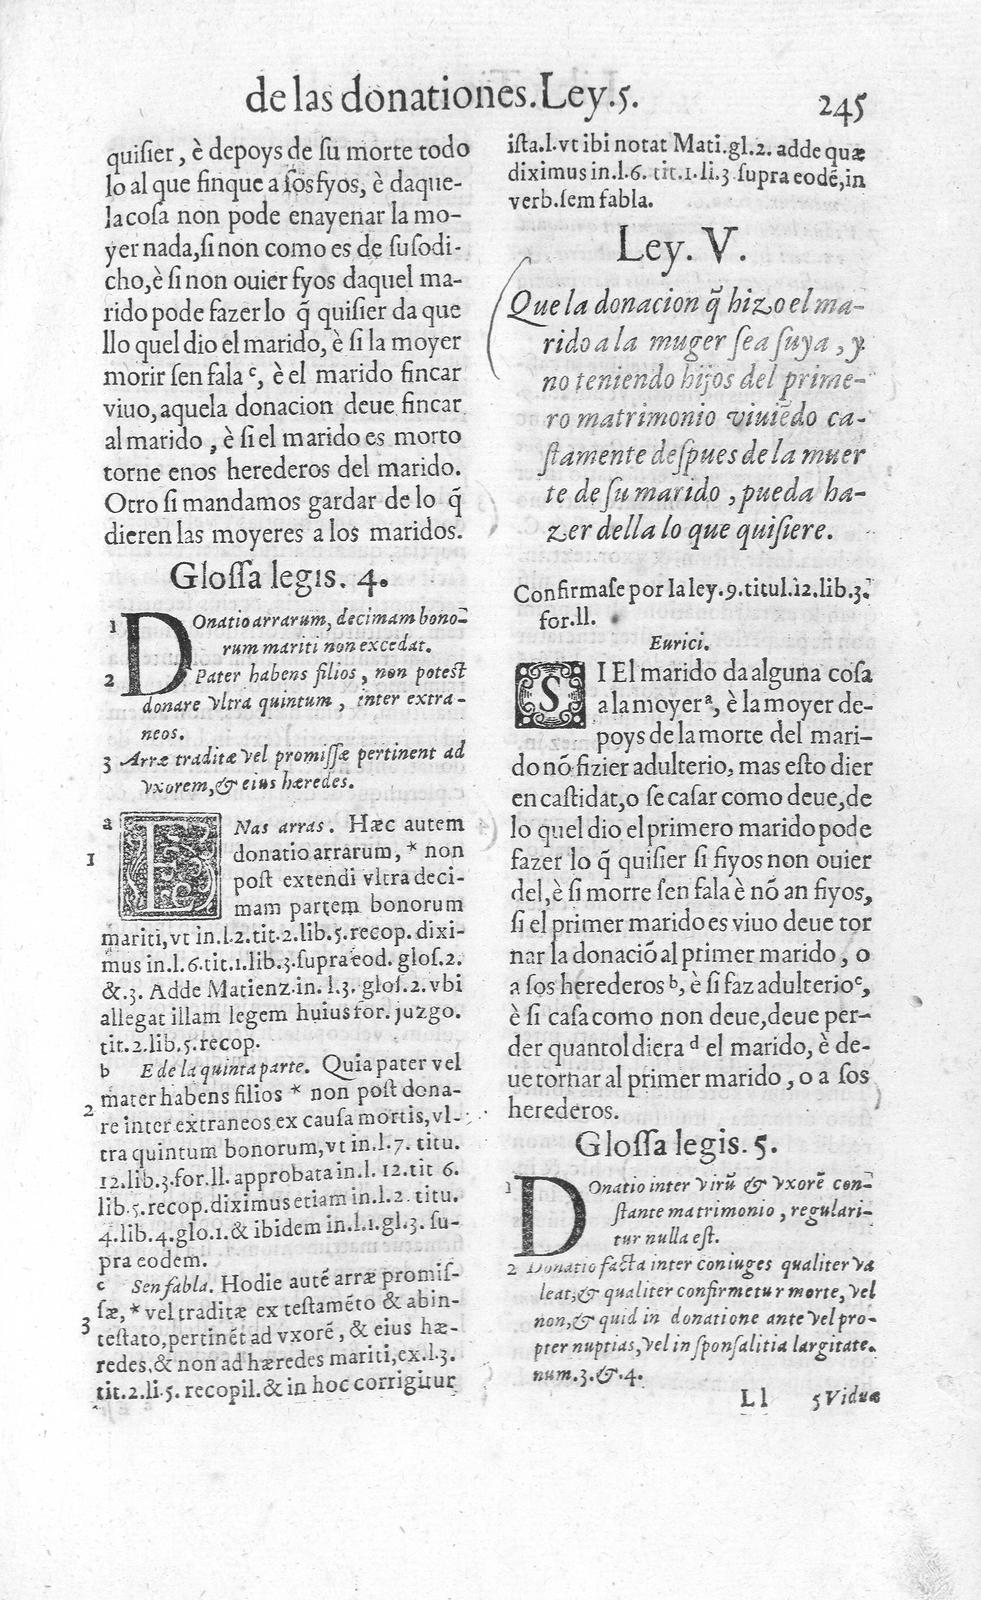 de las donationes.Ley.5.
245
quiſier, è depoys de ſu morte todo
lo al que finque a ſosfyos, è daque-
la coſa non pode enayenar la mo-
yer nada, ſi non como es de ſuſodi-
cho, è ſi non ouier fyos daquel ma-
rido pode fazer lo q̃ quiſier da que
llo quel dio el marido, è ſi la moyer
morir ſen fala ᶜ, è el marido fincar
viuo, aquela donacion deue fincar
al marido, è ſi el marido es morto
torne enos herederos del marido.
Otro ſi mandamos gardar de lo q̃
dieren las moyeres a los maridos.
Gloſſa legis. 4.
1 DOnatio arrarum, decimam bono-
rum mariti non excedat.
2 Pater habens filios, non poteſt
donare vltra quintum, inter extra-
neos.
3 Arræ traditæ vel promiſſæ pertinent ad
vxorem, & eius hæredes.
a ENas arras. Hæc autem
1 donatio arrarum, * non
poſt extendi vltra deci-
mam partem bonorum
mariti, vt in.l.2.tit.2.lib.5.recop. dixi-
mus in.l.6.tit.1.lib.3.ſupra eod. gloſ.2.
&.3. Adde Matienz.in. l.3. gloſ.2. vbi
allegat illam legem huius for. juzgo.
tit.2.lib.5.recop.
b E de la quinta parte. Quia pater vel
mater habens filios * non poſt dona-
2 re inter extraneos ex cauſa mortis, vl-
tra quintum bonorum, vt in.l.7. titu.
12.lib.3.for.ll. approbata in.l. 12.tit 6.
lib.5.recop.diximus etiam in.l.2. titu.
4.lib.4.glo.1.& ibidem in.l.1.gl.3. ſu-
pra eodem.
c Sen fabla. Hodie autẽ arræ promiſ-
ſæ, * vel traditæ ex teſtamẽto & abin-
3 teſtato, pertinẽt ad vxorẽ, & eius hæ-
redes, & non ad hæredes mariti, ex.l.3.
tit.2.li.5. recopil.& in hoc corrigitur
iſta.l.vt ibi notat Mati.gl.2. adde quæ
diximus in.l.6. tit.1.li.3 ſupra eodẽ, in
verb.ſem fabla.
Ley. V.
Que la donacion q̃ hizo el ma-
rido a la muger ſea ſuya, y
no teniendo hijos del prime-
ro matrimonio viuiẽdo ca-
ſtamente deſpues de la muer
te de ſu marido, pueda ha-
zer della lo que quiſiere.
Confirmaſe por la ley.9.titul.12.lib.3.
for.ll.
Eurici.
SI El marido da alguna coſa
a la moyer ᵃ, è la moyer de-
poys de la morte del mari-
do nõ fizier adulterio, mas eſto dier
en caſtidat, o ſe caſar como deue, de
lo quel dio el primero marido pode
fazer lo q̃ quiſier ſi fiyos non ouier
del, è ſi morre ſen fala è nõ an fiyos,
ſi el primer marido es viuo deue tor
nar la donaciõ al primer marido, o
a ſos herederos ᵇ, è ſi faz adulterio ᶜ,
è ſi caſa como non deue, deue per-
der quantol diera ᵈ el marido, è de-
ue tornar al primer marido, o a ſos
herederos.
Gloſſa legis. 5.
1 DOnatio inter virũ & vxorẽ con-
ſtante matrimonio, regulari-
tur nulla eſt.
2 Donatio facta inter coniuges qualiter va
leat; & qualiter confirmetur morte, vel
non, & quid in donatione ante vel pro-
pter nuptias, vel in ſponſalitia largitate.
num.3.&.4.
Ll 5 Viduæ